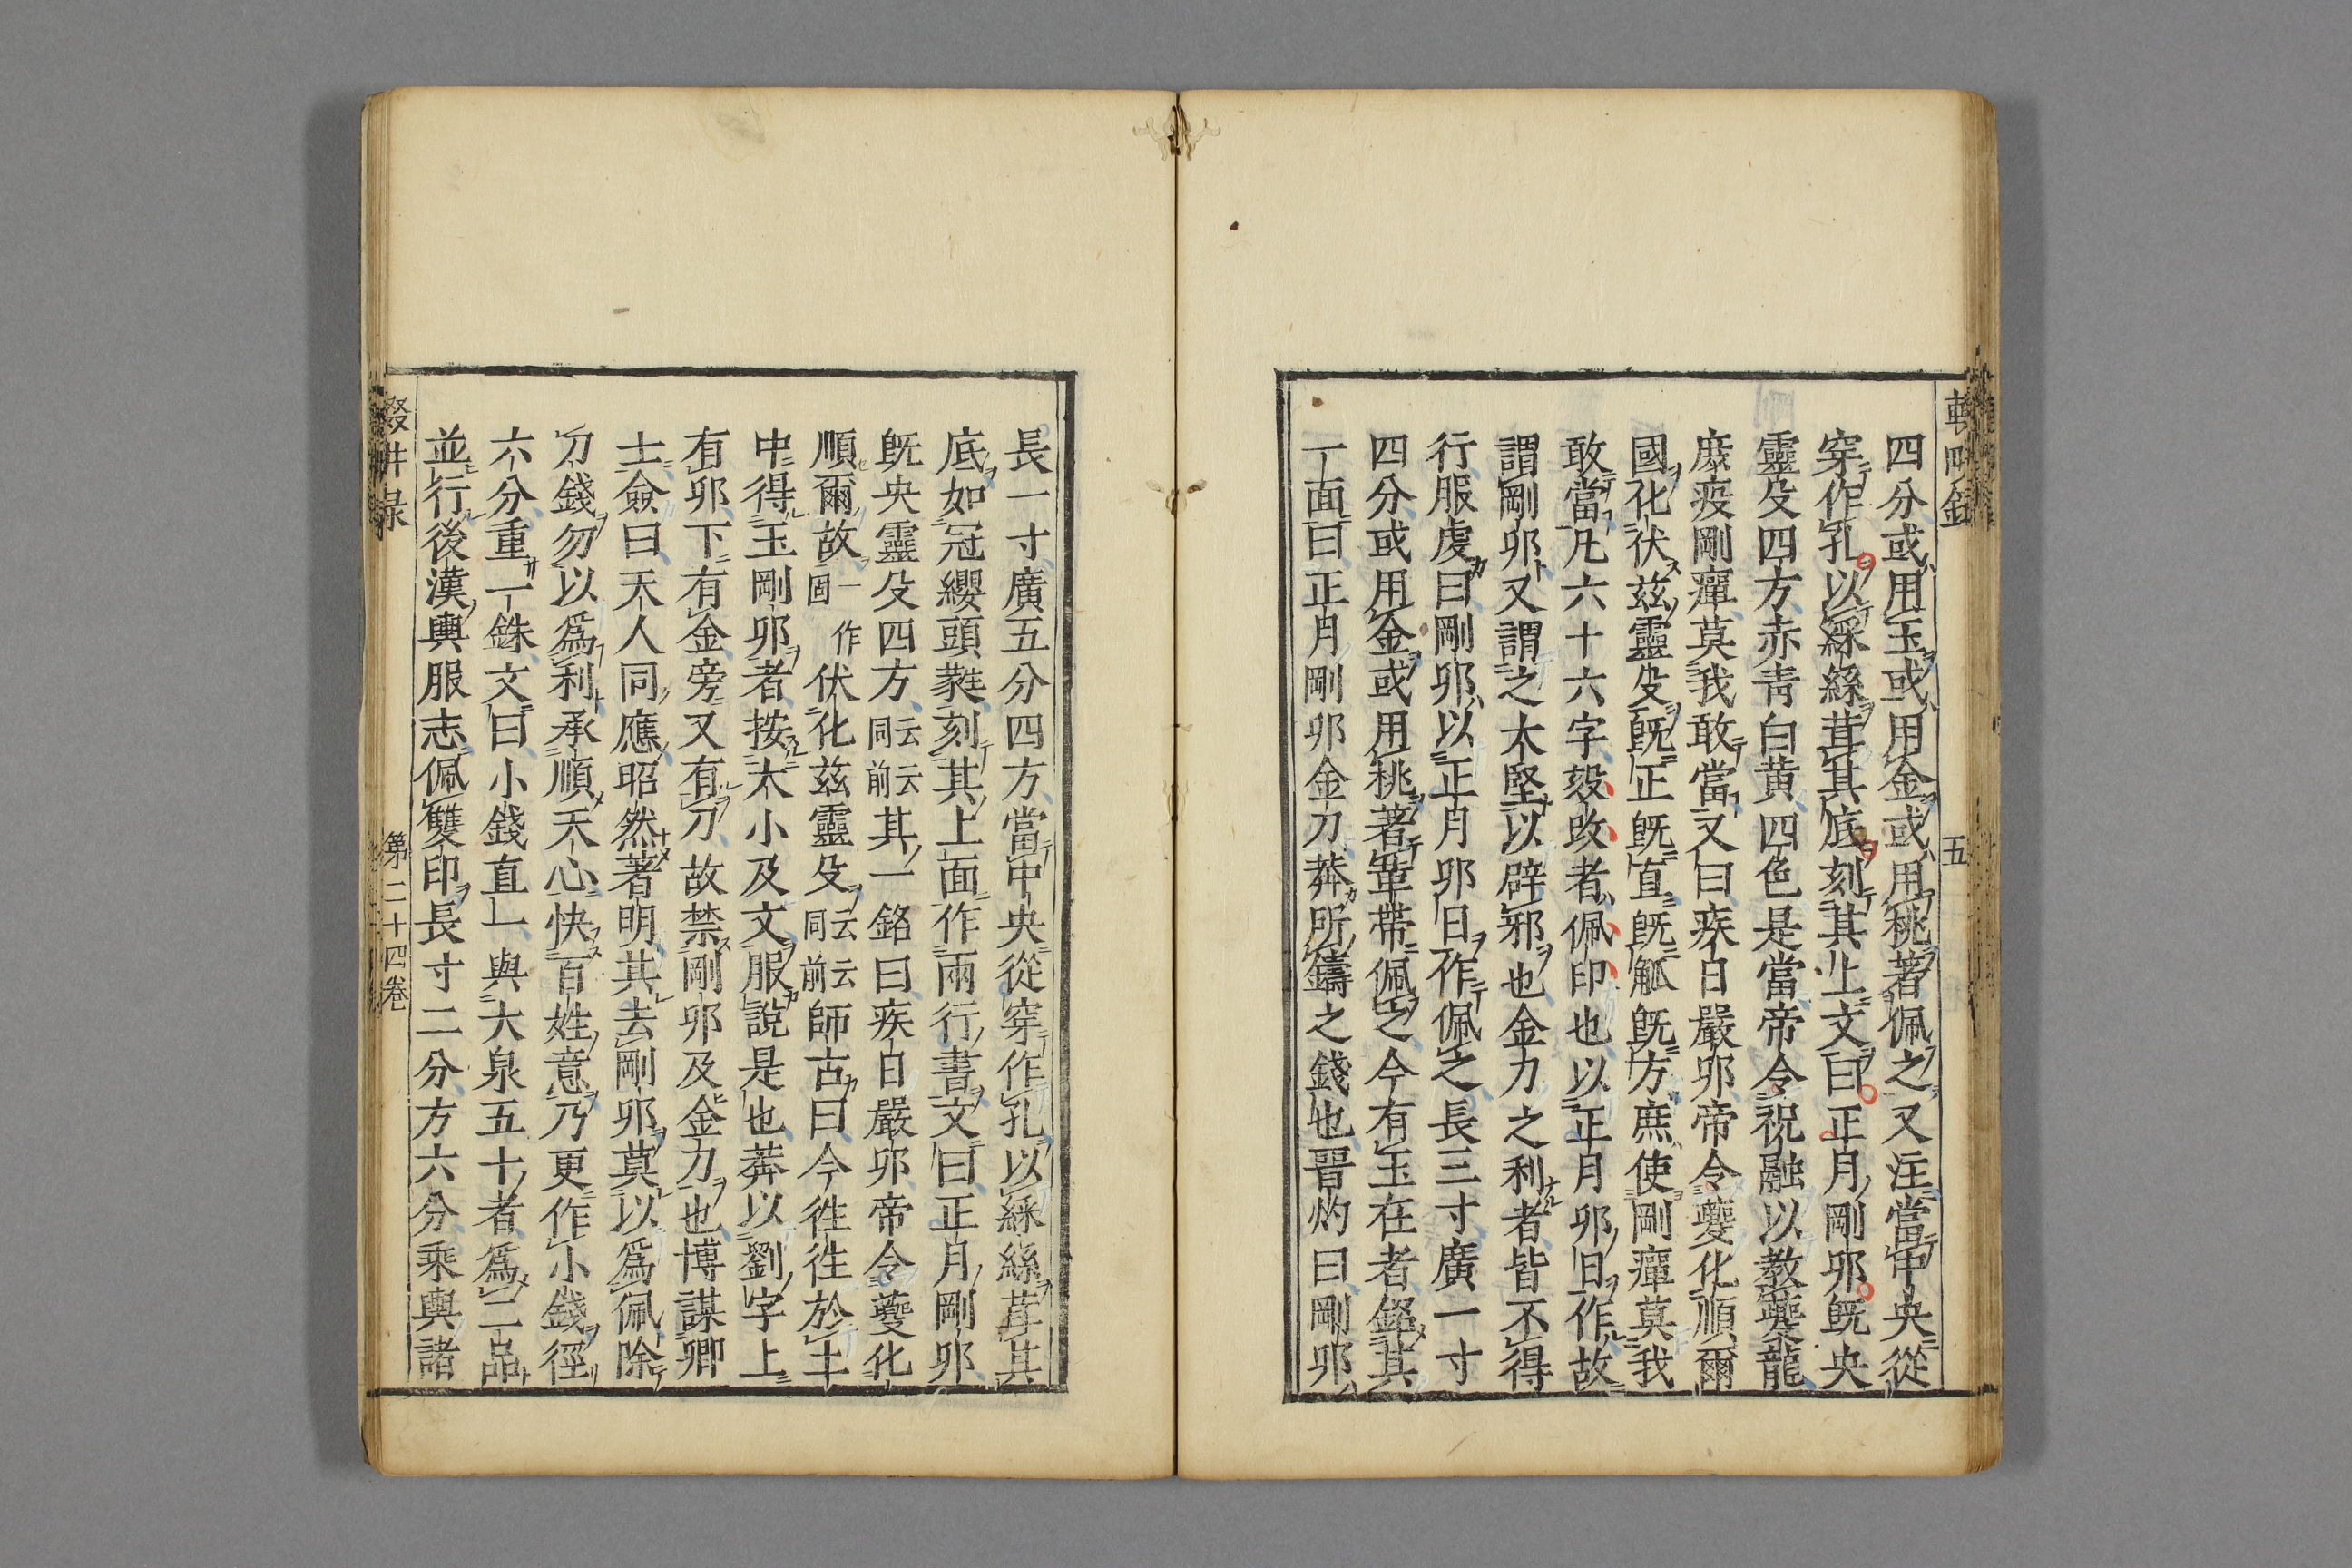 四分或用玉或用金或用桃著佩之又注當中央從
穿作孔以綵絲茸其底刻其上文曰正月剛卯旣央
靈殳四方赤青白黃四色是當帝令祝融以教夔龍
庶疫剛癉莫我敢當又曰疾日嚴卯帝令夔化順爾
國化伏茲靈殳旣正旣直旣觚旣方庶使剛癉莫我
敢當凡六十六字㱾攺者佩印也以正月卯日作故
謂剛卯又謂之大堅以辟邪也金刀之利者皆不得
行服虔曰剛卯以正月卯日作佩之長三寸廣一寸
四分或用金或用桃著革帶佩之今有玉在者銘其
一面曰正月剛卯金刀莽所鑄之錢也晉灼曰剛卯
長一寸廣五分四方當中央從穿作孔以綵絲茸其
底如冠纓頭蕤刻其上面作兩行書文曰正月剛卯
旣央靈殳四方同前云云其一銘曰疾日嚴卯帝令夔化
順爾故一作固伏化茲靈殳同前云云師古曰今往往於土
中得玉剛卯者按大小及文服說是也莽以劉字上
有卯下有金旁又有刀故禁剛卯及金刀也博謀卿
士僉曰天人同應昭然著明其去剛卯莫以爲佩除
刀錢勿以爲利承順天心快百姓意乃更作小錢徑
六分重一銖文曰小錢直一與大泉五十者爲二品
並行後漢輿服志佩雙印長寸二分方六分乘輿諸
第二十四卷
五